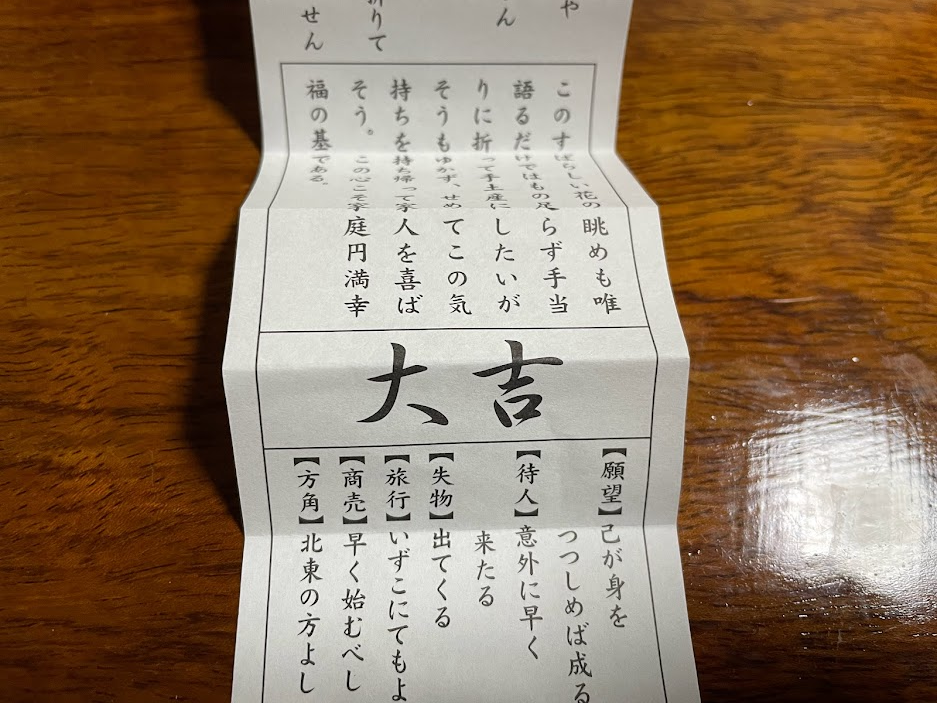 や
ん
りて
せん
このすばらしい花の眺めも唯
語るだけではもの足らず手当
りに折って手土産にしたいが
そうもゆかず、せめてこの気
持ちを持ち帰って家人を喜ば
そう。この心こそ家庭円満幸
福の基である。
大吉
【願望】己が身を
つつしめば成る
【待人】意外に早く
来たる
【失物】出てくる
【旅行】いずこにてもよ
【商売】早く始むべし
【方角】北東の方よし